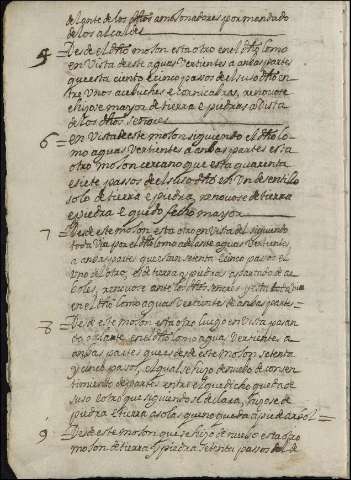 delante de los dhos amojonadores por mandado
de los alcaldes
5 = Desde el dho mojon esta otro en el dho lomo
en vista deste aguas vertientes a anbas partes
que esta ciento e cinco passos del suso dho en
tre unos acebuches e cornicabras, renovose
e hizose mayor de tierra e piedras a vista
de los dhos señores
6 = en vista deste mojon siguiendo el dho lo
mo aguas vertientes a anbas partes esta
otro mojon cercano que esta quarenta
e siete passos del suso dho en un
solo de tierra e piedra, renovose de tierra
e piedra e quedo fecho mayor
7 = Desde este mojon esta otro en vista del siguiendo
toda via por el dho lomo adelante aguas vertientes
a anbas partes que estan setenta e cinco passos el
uno del otro, es de tierra e piedras apartado de ar
boles, renovose ante los dhos señores
en el dho lomo aguas vertientes de anbas partes =
8 = Desde este mojon esta otro luego en vista pasan
do adelante en el dho lomo aguas vertientes a
anbas partes que es desde este mojon setenta
y cinco pasos, el qual se hizo de nuevo de consen
timiento de partes entre el que dicho queda de
suso e otro que siguiendo se declara, hizose de
piedra e tierra a solas que no queda a pie de arbol =
9 = Desde este mojon que se hizo de nuevo esta otro
mojon de tierra y piedra setenta passos del de